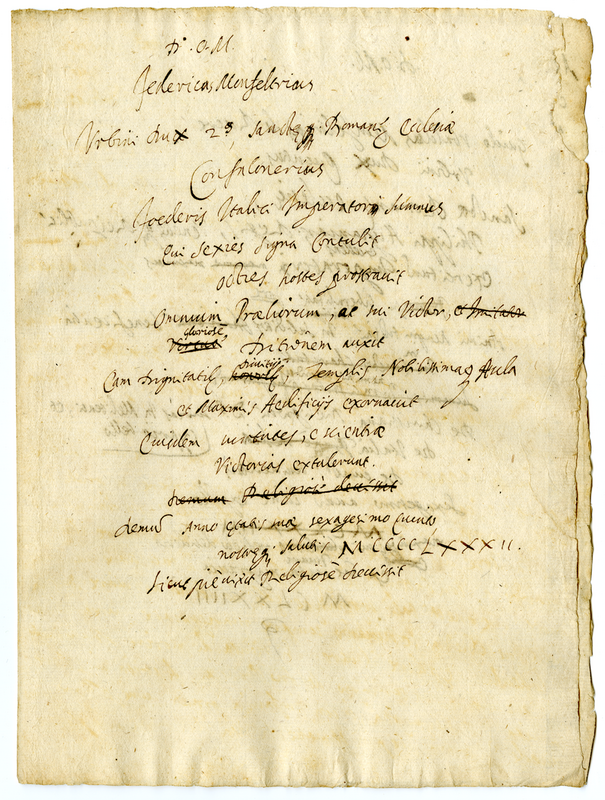 D. O. M.
Federicus Monfeltrius
Urbini Dux 2s, Sanctę Romanę Ecclesiæ
Confalonerius
Foederis Italici Imperator Summus
Qui sexies signa Contulit
octies hostes prostravit
Omnium Præliorum, ac sui Victor, et
gloriosè
Virtus Ditionem auxit
divitijs
Cum Dignitatib, Templis Nobilissimaq Aula
et Maximis Aedificijs exornavit
Eiusdem virtutes, e scientiæ
Victorias extulerunt.
Demum Religiosè decessit
demũ Anno ętatis suæ sexagesimo Quinto
Salutis MCCCCLXXXII.
Sicut piè vixit Religiosè decessit